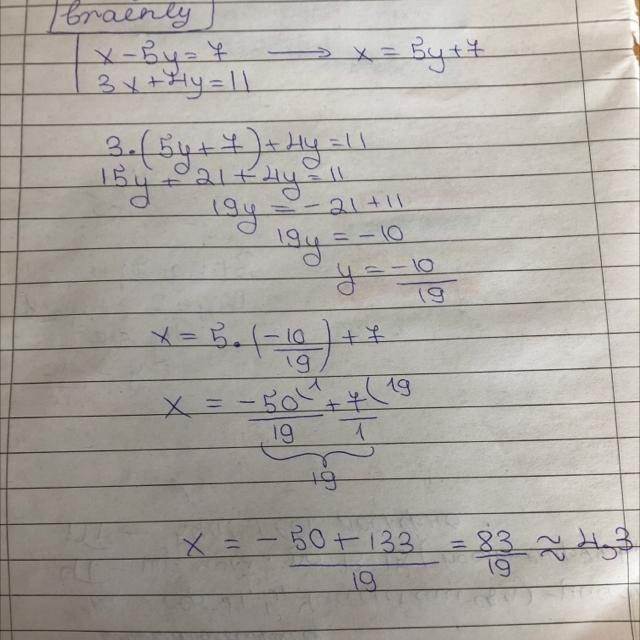 brainly
x-5y=7 → x=5y+7
3x+4y=11
3·(5y+7)+4y=11
15y+21+4y=11
19y=-21+11
19y=-10
y=-10/19
x=5·(-10/19)+7
x=-50/19 (1 + 7/1 (19
19
x=-50+133/19=83/19≈4,3